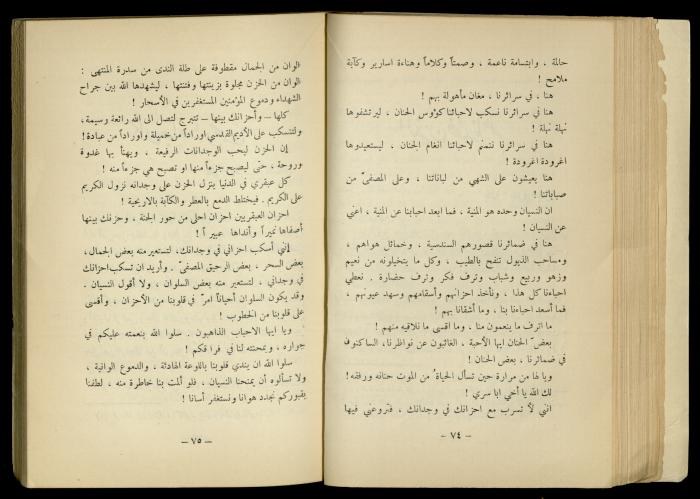 حالمة ، وابتسامة ناعمة ، وصمتاً وكلاماً وهناءة اسارير وكآبة
ملامح !
هنا ، في سرائرنا ، مغان مأهولة بهم !
هنا في سرائرنا نسكب لاحبائنا كؤوس الحنان ، ليرتشفوها
نهلة نهلة !
هنا في سرائرنا نتمنم لاحبائنا انغام الحنان ، ليستعيدوها
اغرودة اغرودة !
هنا يعيشون على الشهي من لباناتنا ، وعلى المصفىّ من
صباباتنا !
ان النسيان وحده هو المنية ، فما ابعد احبابنا عن المنية ، اعني
عن النسيان !
هنا في ضمائرنا قصورهم السندسية ، وخمائل هواهم ،
ومساحب الذيول تنفح بالطيب ، وكل ما يتخيلونه من نعيم
وزهو وربيع وشباب وترف فكر وترف حضارة . نعطي
احباءنا كل هذا ، ونأخذ احزانهم وأسقامهم وسهد عيونهم ،
فما أسعد احباءنا بنا ، وما أشقانا بهم !
ما اترف ما ينعمون منا ، وما اقسى ما نلاقيه منهم !
بعضَ الحنان ايها الأحبة ، الغائبون عن نواظرنا ، الساكنون
في ضمائرنا ، بعض الحنان !
ويا لها من مرارة حين تسأل الحياةُ من الموت حنانه ورفقه !
لك الله يا أخي ابا سري !
انني لأتسرب مع احزانك في وجدانك ، فتروعني فيها
— ٧٤ —
الوان من الجمال مقطوفة على طلة الندى من سدرة المنتهى :
الوان من الحزن مجلوة بزينتها وفتنتها ، ليشهدها الله بين جراح
الشهداء ودموع المؤمنين المستغفرين في الأسحار !
كلها — وأحزانك بينها — تتبرج لتصل الى الله رائعة وسيمة ،
ولتنسكب على الأديم القدسي اوراداً من خميلة واوراداً من عبادة !
إن الحزن ليحب الوجدانات الرفيعة ، ويهنأ بها غدوة
وروحة ، حتى ليصبح جزءاً منها او تصبح هي جزءاً منه !
كل عبقري في الدنيا ينزل الحزن على وجدانه نزول الكريم
على الكريم . فيختلط الدمع بالعطر والكآبة بالاريحية !
احزان العبقريين احزان احلى من حور الجنة ، وحزنك بينها
أصفاها نميراً وأنداها عبيراً !
إنني أسكب احزاني في وجدانك ، لتستعير منه بعض الجمال ،
بعض السحر ، بعض الرحيق المصفىّ . وأريد ان تسكب احزانك
في وجداني ، لتستعير منه بعض السلوان ، ولا أقول النسيان .
وقد يكون السلوان أحياناً امرّ في قلوبنا من الأحزان ، وأقسى
على قلوبنا من الخطوب !
ويا ايها الاحباب الذاهبون . سلوا الله بنعمته عليكم في
جواره ، وبمحنته لنا في فراقكم !
سلوا الله ان يندي قلوبنا باللوعة الهادئة ، والدموع الوافية ،
ولا تسألوه أن يمنحنا النسيان ، فلو ألمت بنا خاطرة منه ، لطفنا
بقبوركم نجدد هوانا ونستغفر أسانا !
— ٧٥ —